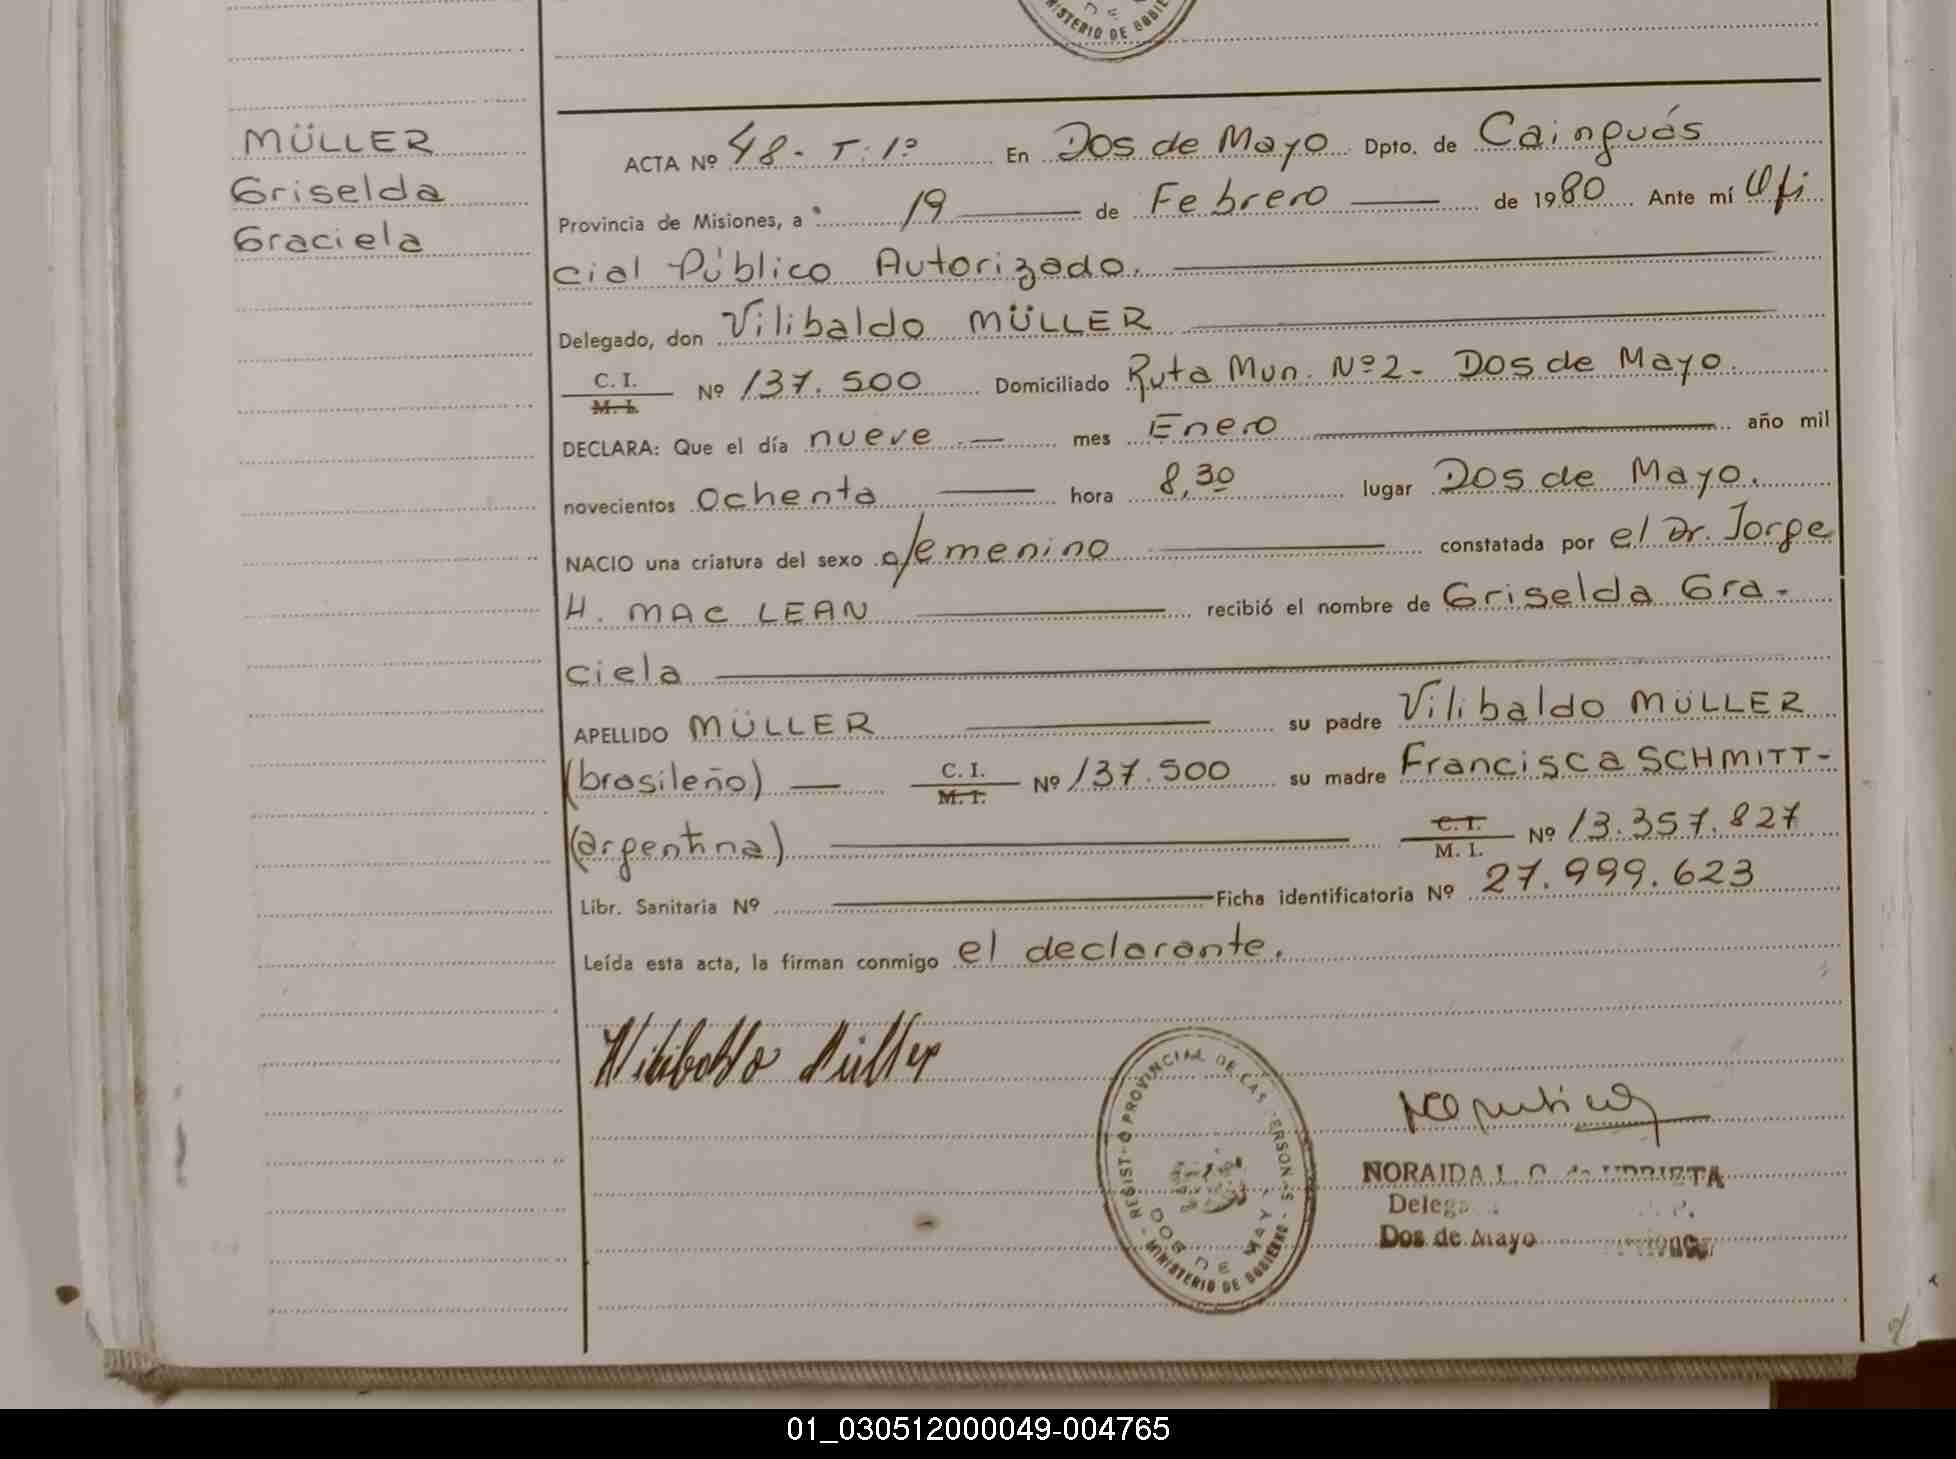 MINISTERIO DE GOBIE
DE
MÜLLER
Griselda
Graciela
ACTA Nº 48- T: 1º En Dos de Mayo Dpto. de Cainguás
Provincia de Misiones, a 19 de Febrero de 1980 Ante mí Ofi
cial Público Autorizado.
Delegado, don Vilibaldo MÜLLER
C. I. M. I. Nº 137.500 Domiciliado Ruta Mun. Nº2- Dos de Mayo.
DECLARA: Que el día nueve mes Enero año mil
novecientos ochenta hora 8,30 lugar Dos de Mayo.
NACIO una criatura del sexo femenino constatada por el Dr. Jorge
H. MAC LEAN recibió el nombre de Griselda Gra-
ciela
APELLIDO MÜLLER su padre Vilibaldo MÜLLER
(brasileño) C. I. M. I. Nº 137.500 su madre Francisca SCHMITT-
(argentina) C. I. M. I. Nº 13.357.827
Libr. Sanitaria Nº Ficha identificatoria Nº 27.999.623
Leída esta acta, la firman conmigo el declarante.
Vilibaldo Müller
REGISTRO PROVINCIAL DE LAS PERSONAS
DOS DE MAYO
MINISTERIO DE GOBIERNO
NORAIDA L. C. de URRIETA
Dos de Mayo
01_030512000049-004765